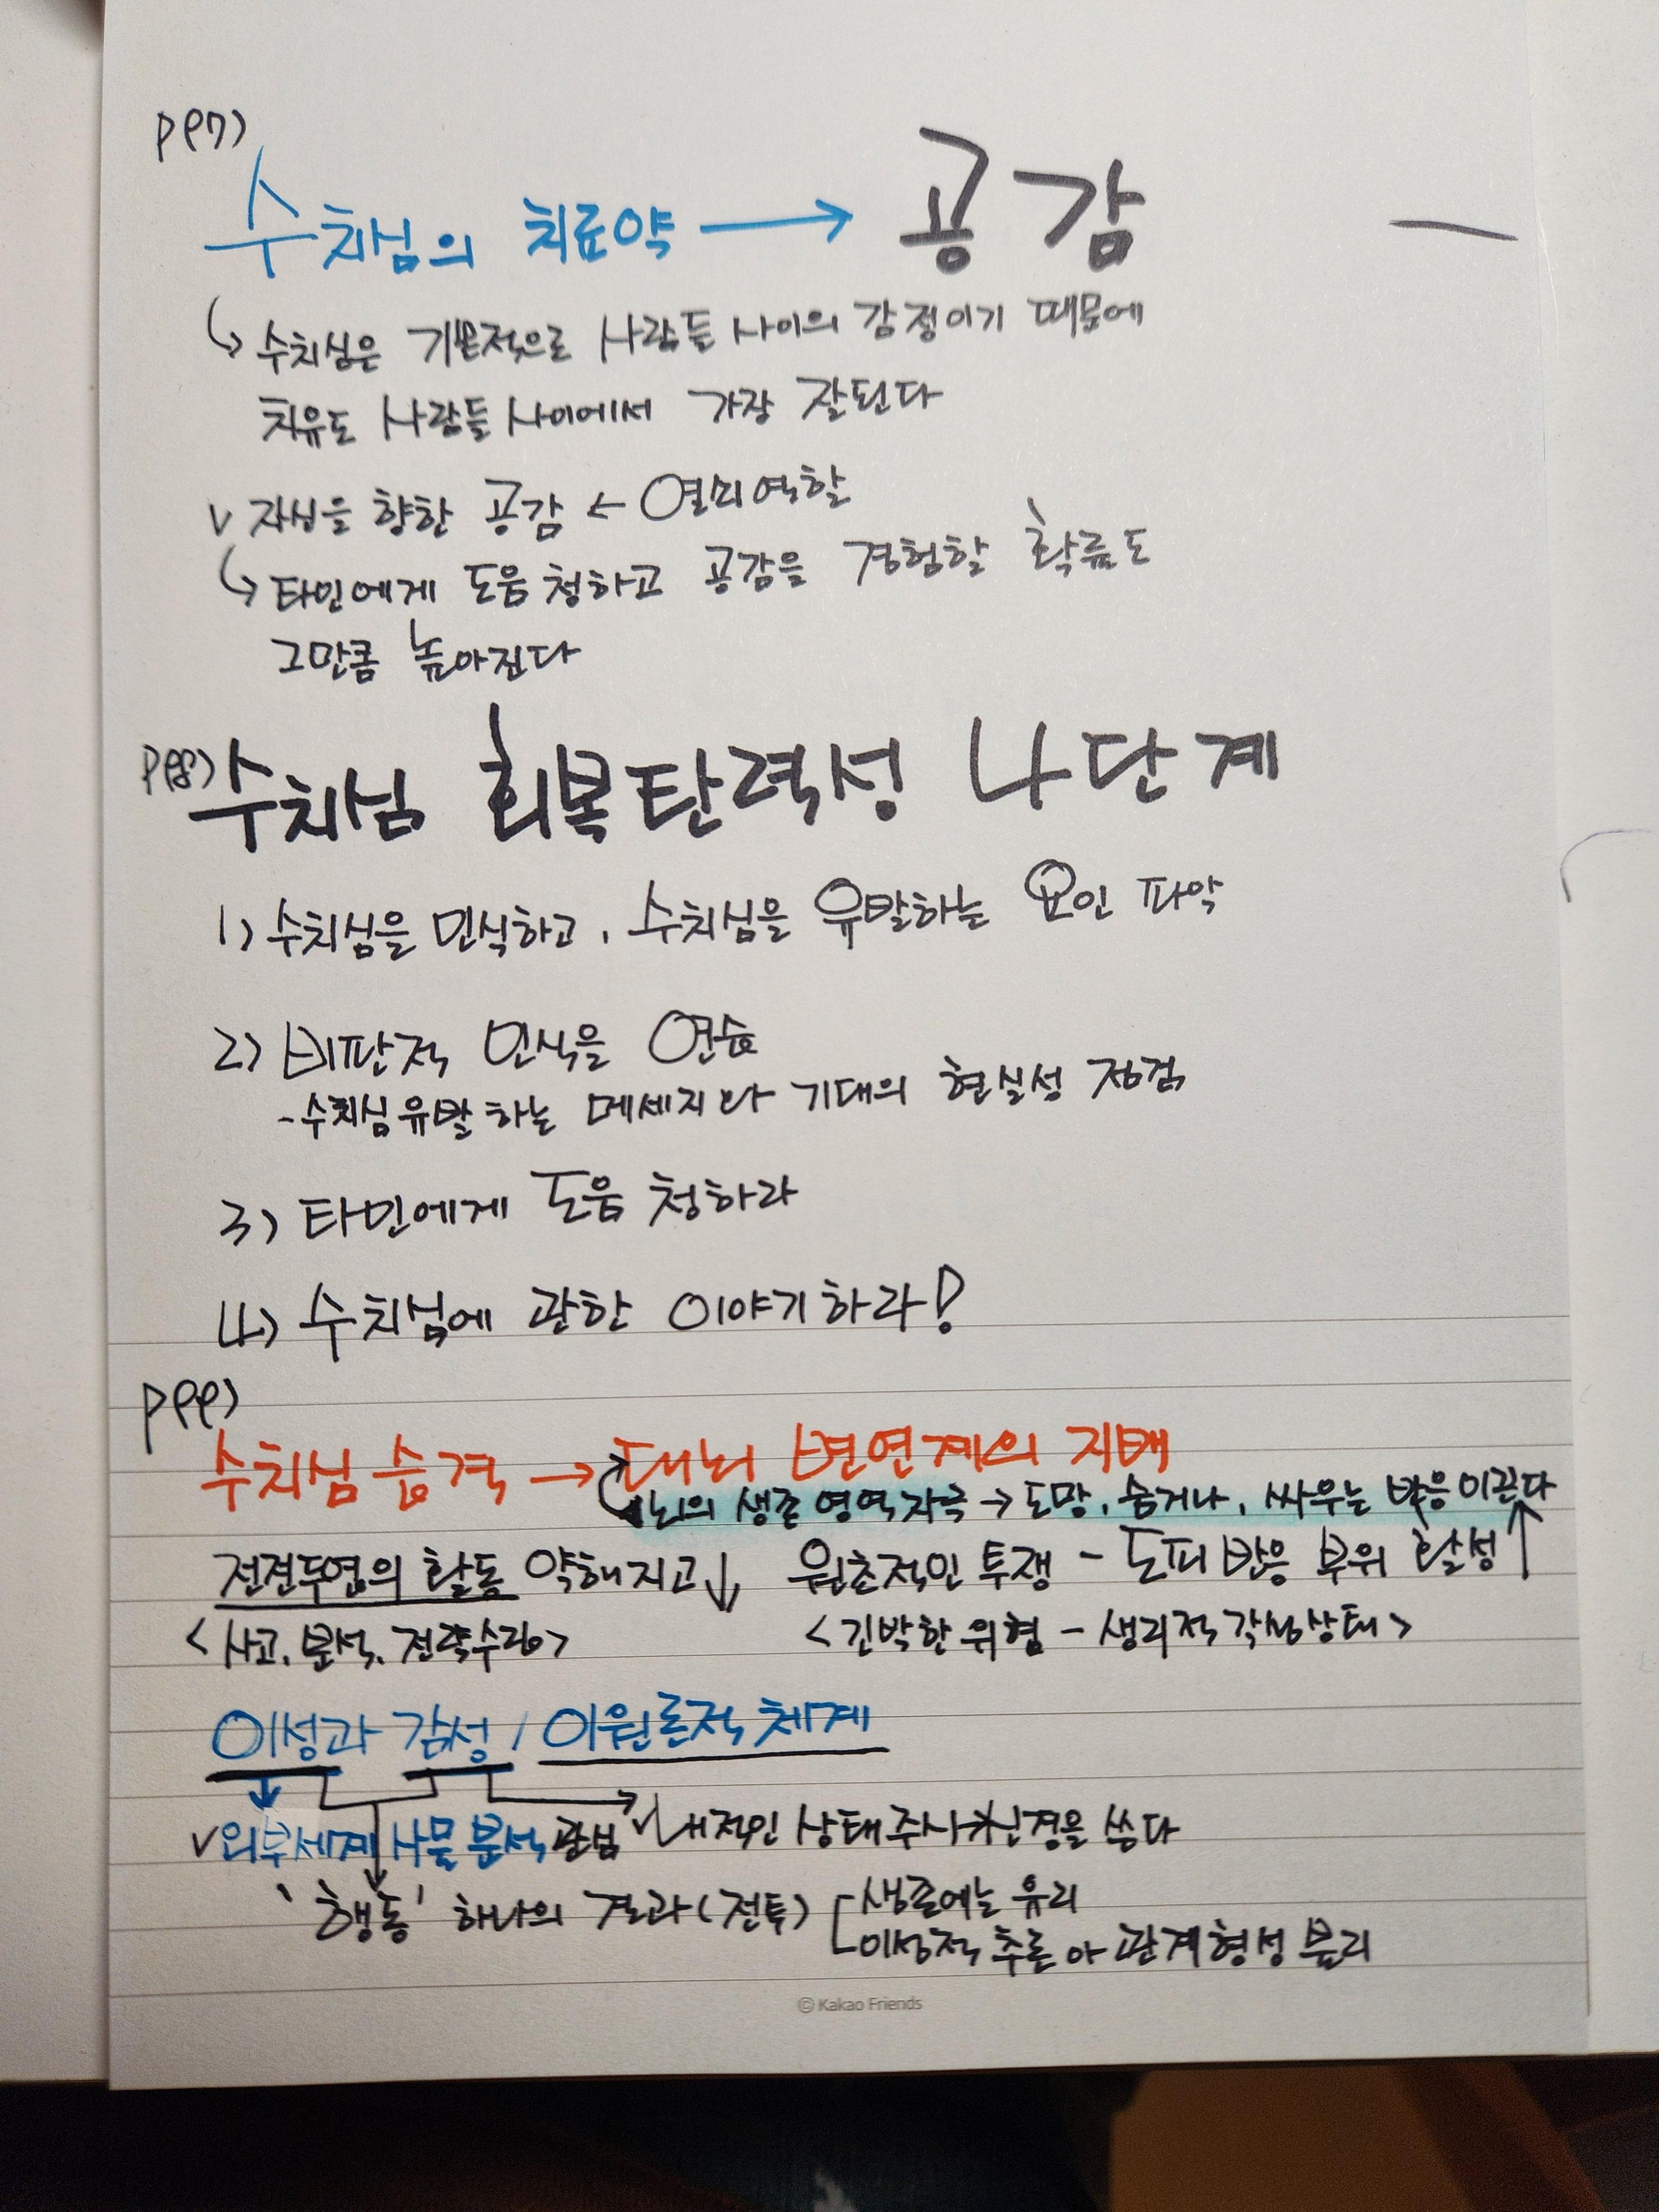 P97)
수치심의 치료약 → 공감
수치심은 기본적으로 사람들 사이의 감정이기 때문에
치유도 사람들 사이에서 가장 잘된다
v 자신을 향한 공감 ← 열쇠역할
타인에게 도움 청하고 공감을 경험할 확률도
그만큼 높아진다
P98) 수치심 회복탄력성 4단계
1) 수치심을 인식하고, 수치심을 유발하는 요인 파악
2) 비판적 인식을 연습
-수치심유발하는 메세지나 기대의 현실성 점검
3) 타인에게 도움 청하라
4) 수치심에 관한 이야기하라!
P99)
수치심 습격 → 대뇌 변연계의 지배
뇌의 생존 영역자극 → 도망, 숨거나, 싸우는 반응이끈다
전전두엽의 활동 약해지고↓ 원초적인 투쟁 - 도피 반응 부위 활성↑
<사고, 분석, 전략수립> <긴박한 위험 - 생리적 각성상태>
이성과 감성 / 이원론적 체계
v외부세계 사물 분석 관심 v내적인 상태 주시 신경을 쓴다
'행동' 하나의 결과(전투) 생존에는 유리
이성적 추론 아 관계형성 불리
© Kakao Friends